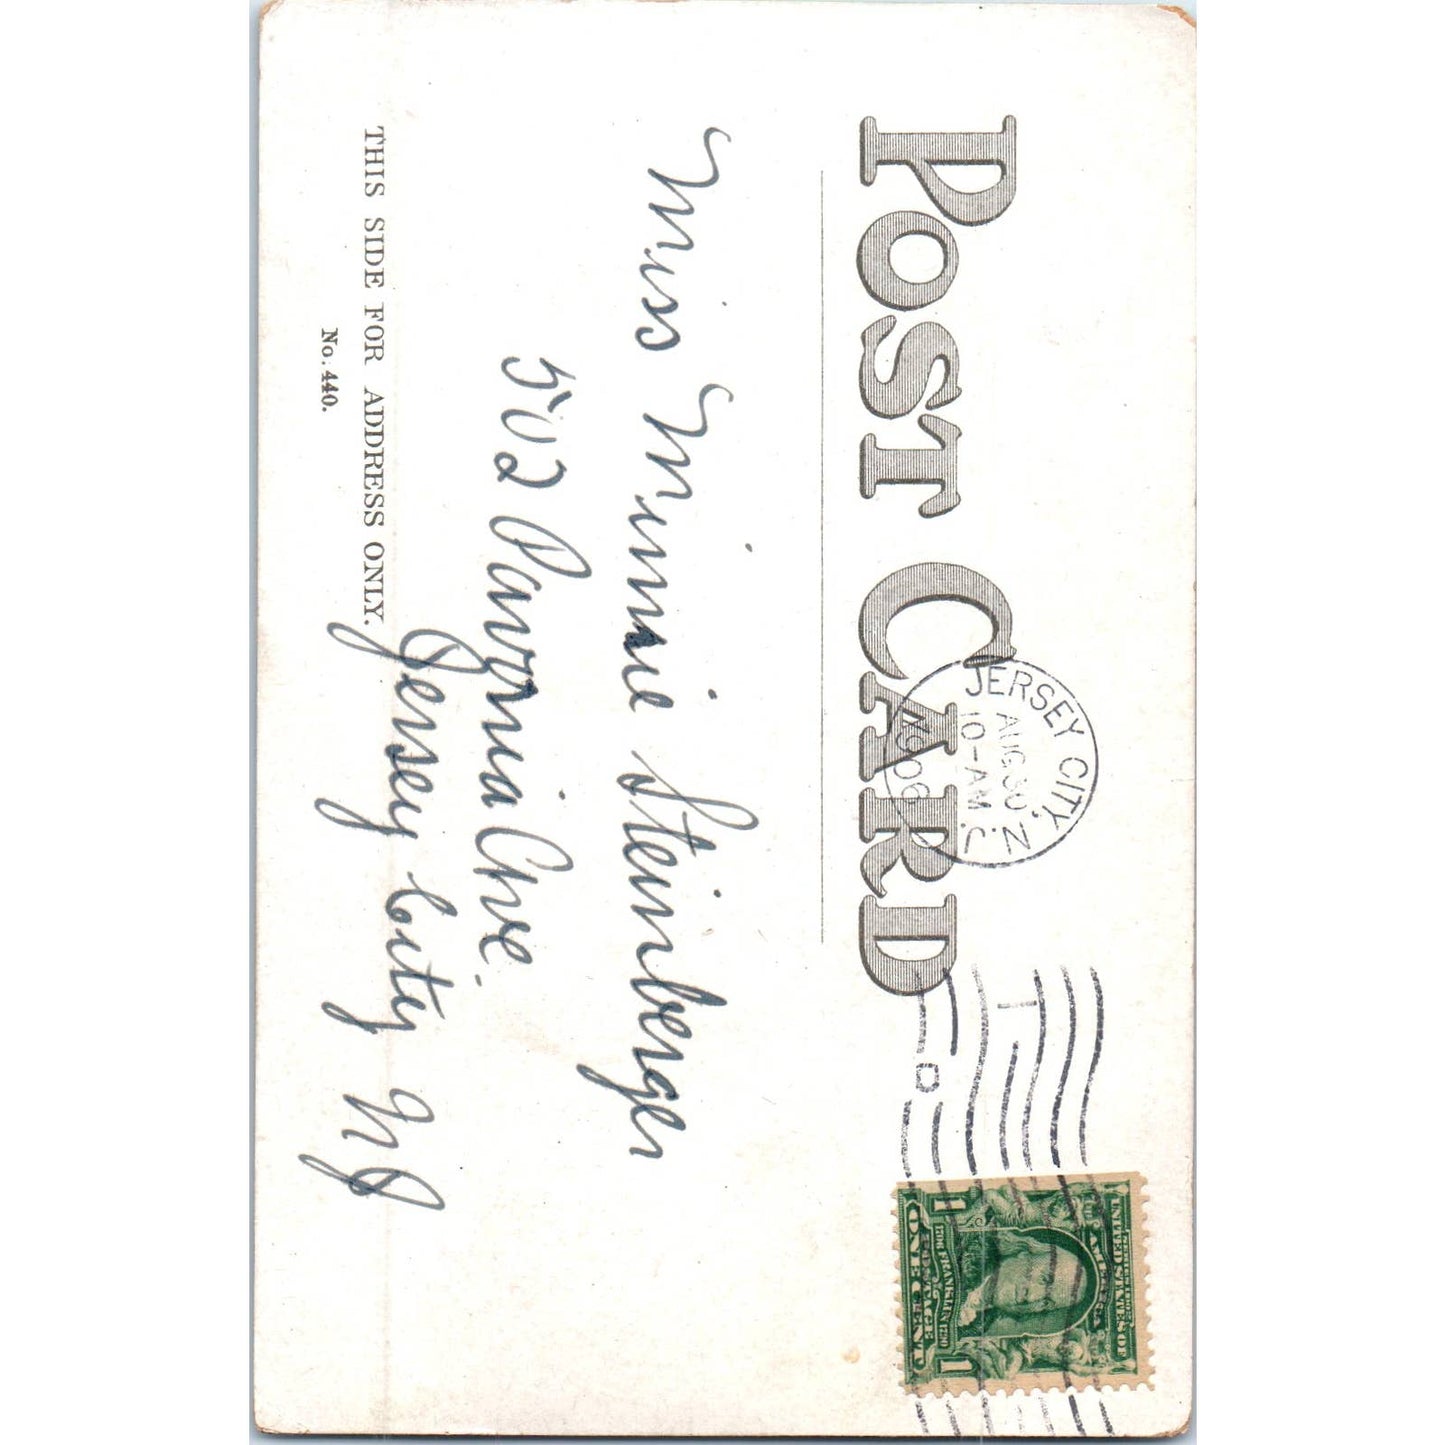 POST CARD
JERSEY CITY, N.J.
AUG 30
10-AM
1906
UNITED STATES OF
AMERICA
1 FRANKLIN 1
POSTAGE
ONE CENT
Miss Minnie Steinberger
502 Pavonia Ave.
Jersey City NJ
THIS SIDE FOR ADDRESS ONLY.
No. 440.